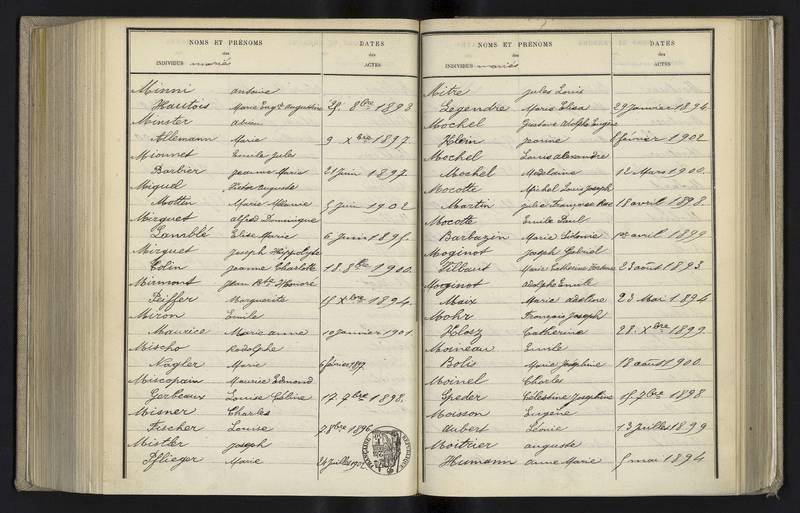 NOMS ET PRÉNOMS
des
INDIVIDUS mariés
DATES
des
ACTES
Minni Antoine
Hautois Marie Eugie Augustine 25. 8bre 1893
Minster Adrien
Allemann Marie 9 xbre 1897.
Mionnet Emile Jules
Barbier Jeanne Marie 21 juin 1897
Miquel Victor Auguste
Mottin Marie Mélanie 5 juin 1902
Mirguet Alfred Dominique
Lamblé Elise Marie 6 juin 1895.
Mirguet Joseph Hippolyte
Colin Jeanne Charlotte 18. 8bre 1900.
Mirmont Jean Bte Honoré
Peiffer Marguerite 15 Xbre 1894.
Miron Emile
Maurice Marie Anne 10 janvier 1901
Mischo Rodolphe
Nagler Marie 6 février 1897
Miscopein Maurice Edmond
Gerbeaux Louise Céline 17. 7bre 1898.
Misner Charles
Fischer Louise 7 8bre 1896
Mistler Joseph
Pflieger Marie 24 juillet 1901
NOMS ET PRÉNOMS
des
INDIVIDUS mariés
DATES
des
ACTES
Mitre Jules Louis
Legendre Marie Elisa 29 janvier 1894
Mochel Gustave Adolphe Eugène
Klein Jeanne 1 février 1902
Mochel Louis Alexandre
Mochel Madelaine 12 Mars 1900.
Mocotte Michel Louis Joseph
Martin Julie Françoise Rose 18 avril 1898.
Mocotte Emile Paul
Barbazin Marie Sidonie 1er avril 1899
Moginot Joseph Gabriel
Vilbaut Marie Catherine 23 août 1893.
Morginot Adolphe Emile
Maix Marie Adeline 23 Mai 1894
Mohr François Joseph
Klosz Catherine 28. Xbre 1899.
Moineau Emile
Bolis Marie Joséphine 18 août 1900.
Moinel Charles
Speder Célestine Joséphine 15. 7bre 1898
Moisson Eugène
Aubert Léonie 13 juillet 1899
Moitrier Auguste
Humann Anne Marie 5 mai 1894